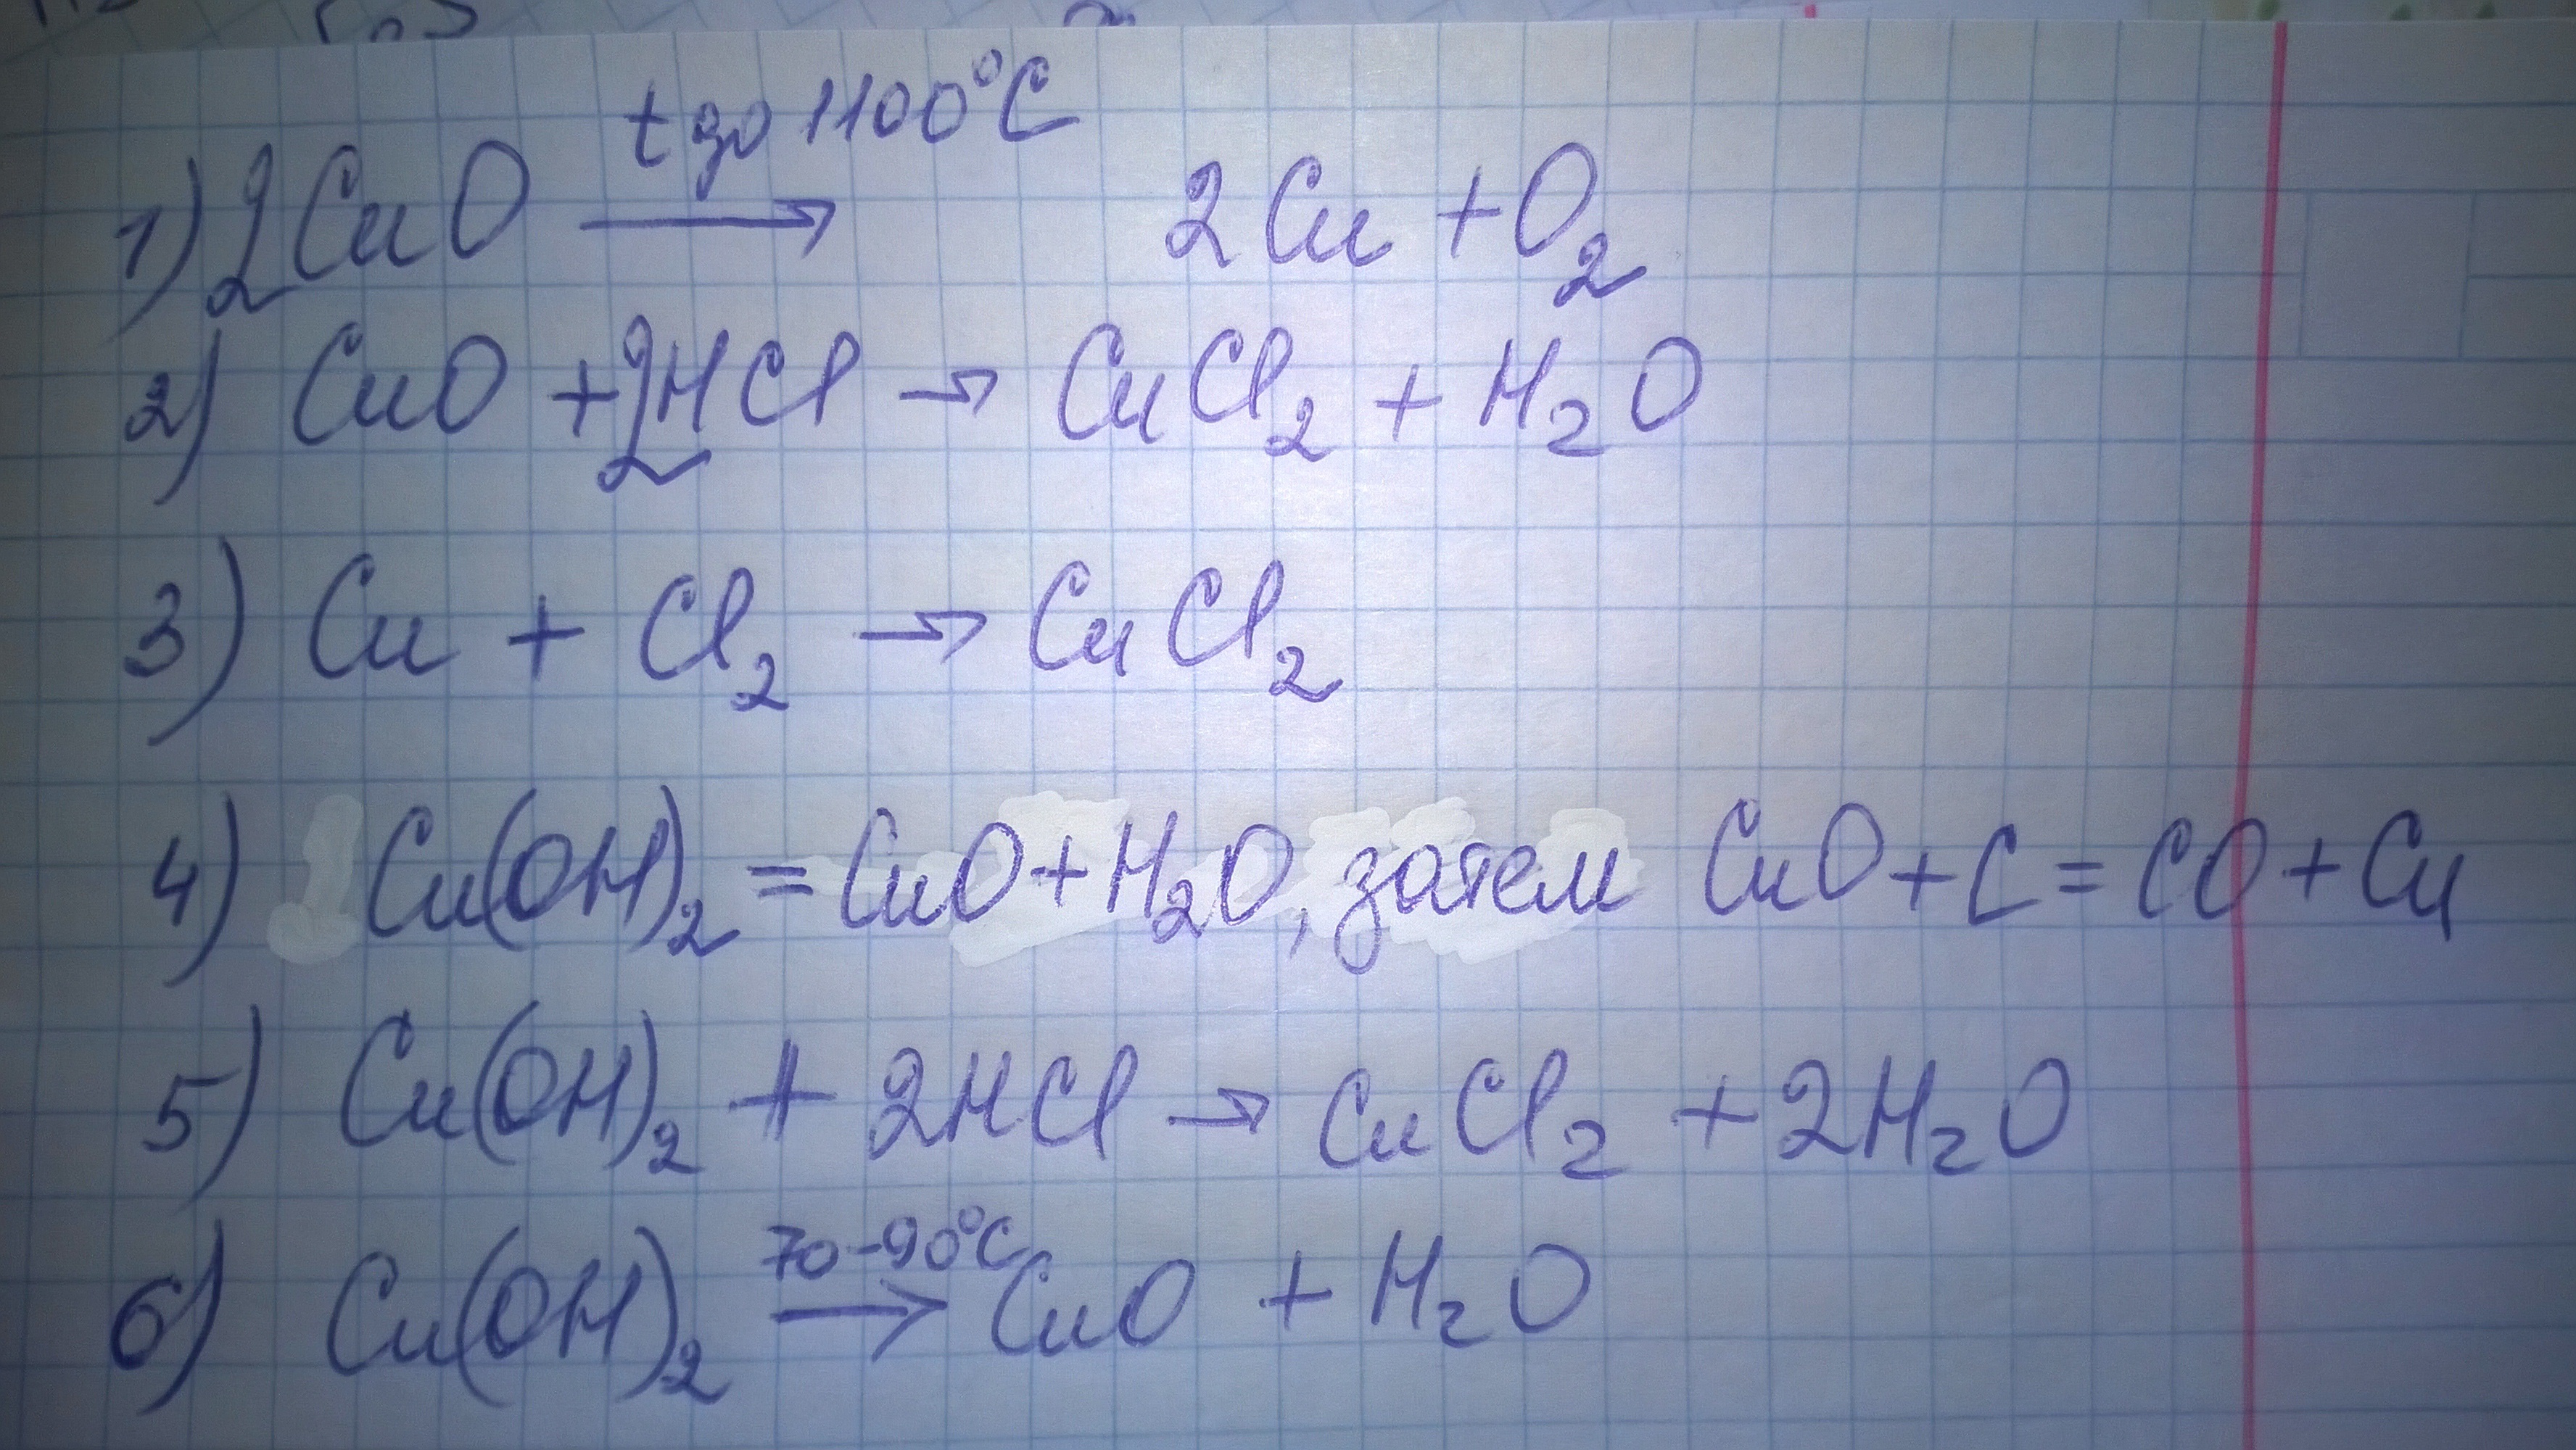 t до 1100°C
1) 2CuO → 2Cu + O₂
2) CuO + 2HCl → CuCl₂ + H₂O
3) Cu + Cl₂ → CuCl₂
4) Cu(OH)₂ = CuO + H₂O, затем CuO + C = CO + Cu
5) Cu(OH)₂ + 2HCl → CuCl₂ + 2H₂O
70-90°C
6) Cu(OH)₂ → CuO + H₂O